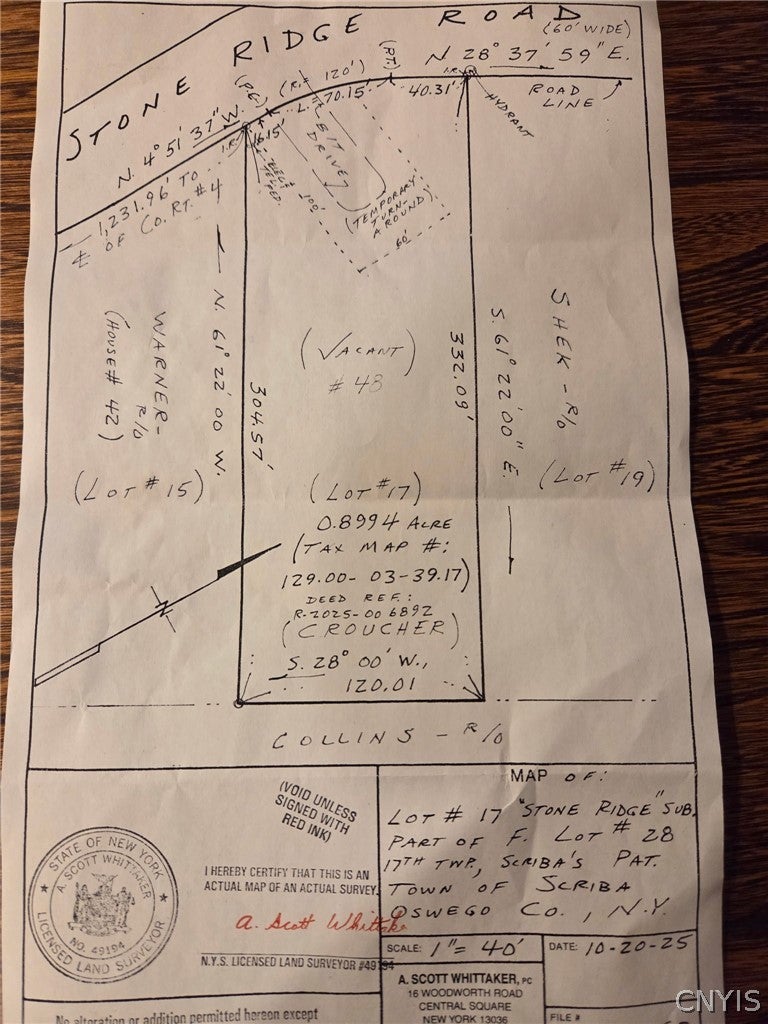 STONE RIDGE ROAD
(60' WIDE)
N 28° 37' 59" E.
ROAD
LINE
HYDRANT
I.R.
40.31'
(P.T.)
(R.= 120')
L. 70.15'
16.15'
N. 4° 51' 37" W.
I.R.
1,231.96' TO
℄ OF CO. RT. #4
DRIVE)
100'
(TEMPORARY
TURN-
AROUND)
60'
N. 61° 22' 00 W.
304.57'
332.09'
S. 61° 22' 00" E.
WARNER-
R/O
(HOUSE # 42)
(VACANT)
# 48
SHEK - R/O
(LOT # 15)
(LOT #17)
(LOT #19)
0.8994 ACRE
(TAX MAP #:
129.00- 03-39.17)
DEED REF.:
R-2025-006892
(CROUCHER)
S. 28° 00' W.,
120.01
N
COLLINS - R/O
(VOID UNLESS
SIGNED WITH
RED INK)
STATE OF NEW YORK
A. SCOTT WHITTAKER
NO. 49194
LICENSED LAND SURVEYOR
I HEREBY CERTIFY THAT THIS IS AN
ACTUAL MAP OF AN ACTUAL SURVEY.
A. Scott Whittaker
N.Y.S. LICENSED LAND SURVEYOR #49194
No alteration or addition permitted hereon except
MAP OF:
LOT # 17 "STONE RIDGE" SUB.
PART OF F. LOT # 28
17TH TWP., SCRIBA'S PAT.
TOWN OF SCRIBA
OSWEGO CO., N.Y.
SCALE: 1" = 40'
DATE: 10-20-25
A. SCOTT WHITTAKER, PC
16 WOODWORTH ROAD
CENTRAL SQUARE
NEW YORK 13036
FILE #
CNYIS